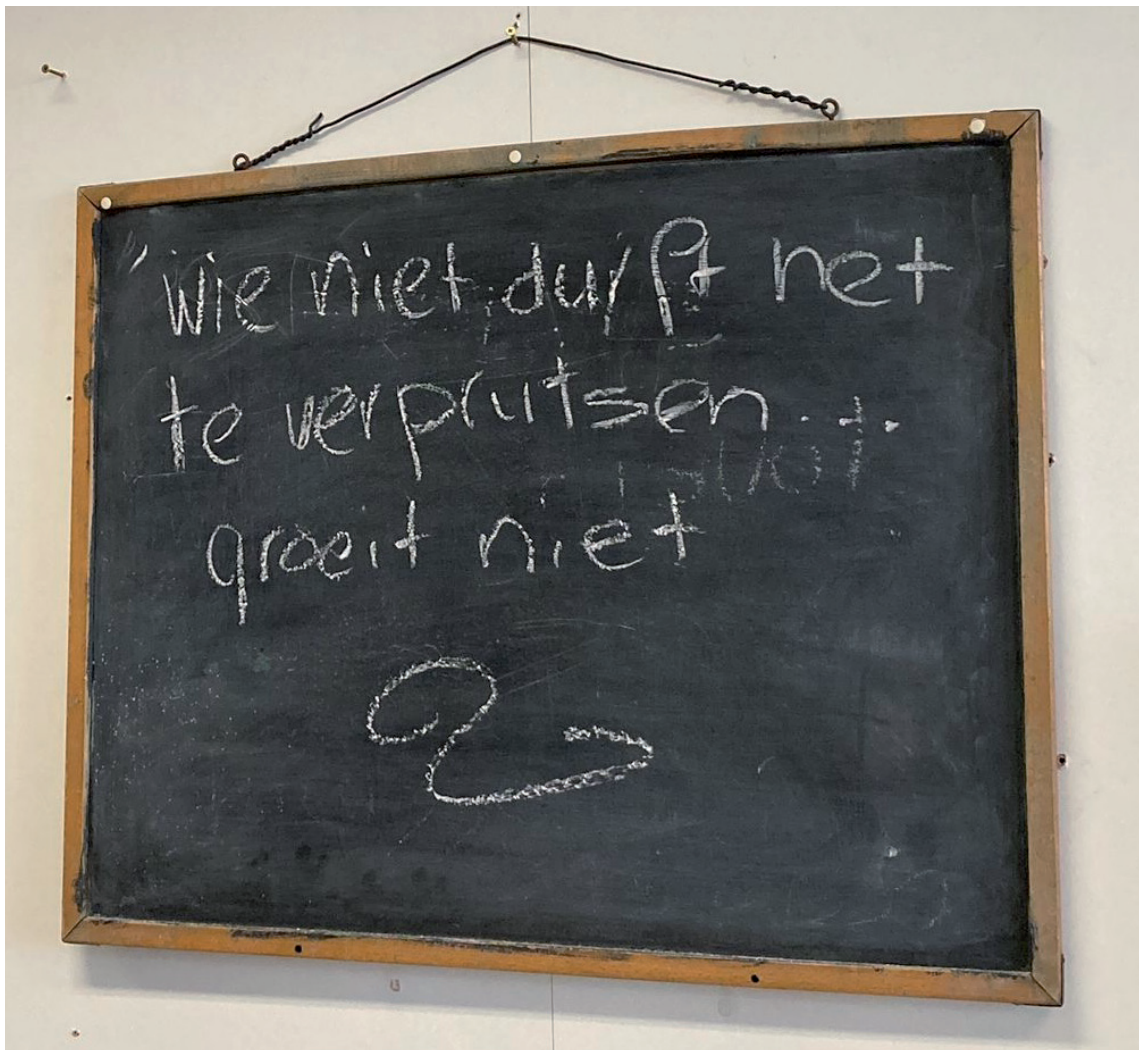 "wie niet durft net
te verprutsen..
groeit niet